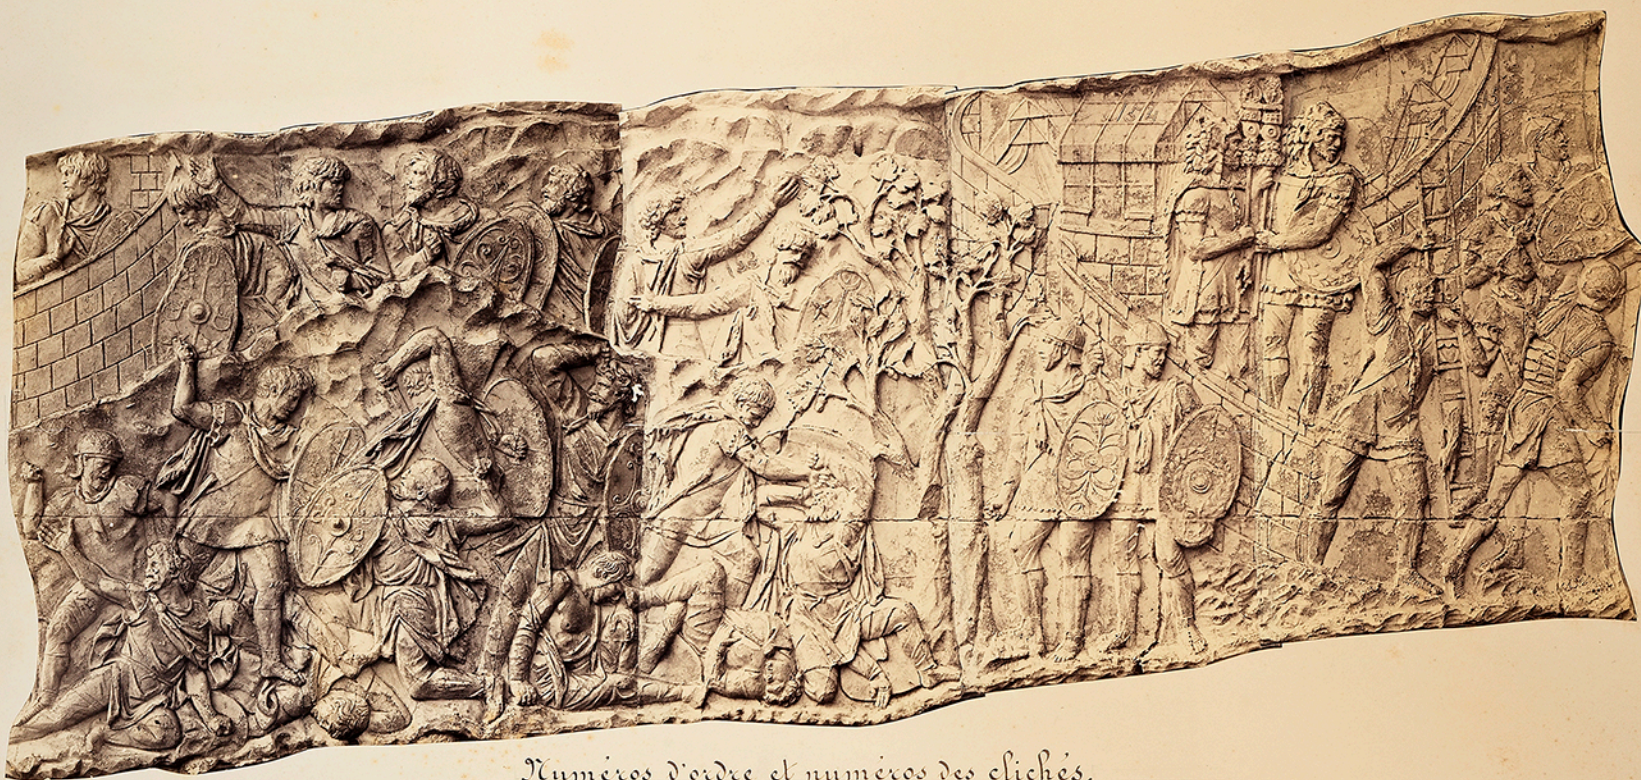 Numéros d'ordre et numéros des clichés.